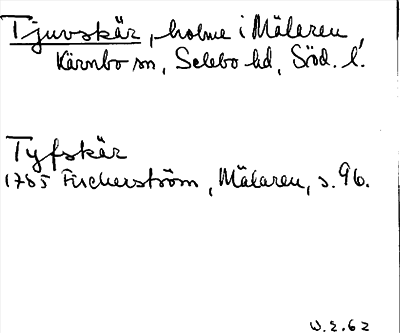 Tjuvskär, holme i Mälaren,
Kärnbo sn, Selebo hd, Söd. l.
Tyfskär
1785 Fischerström, Mälaren, s. 96.
W.E. 62